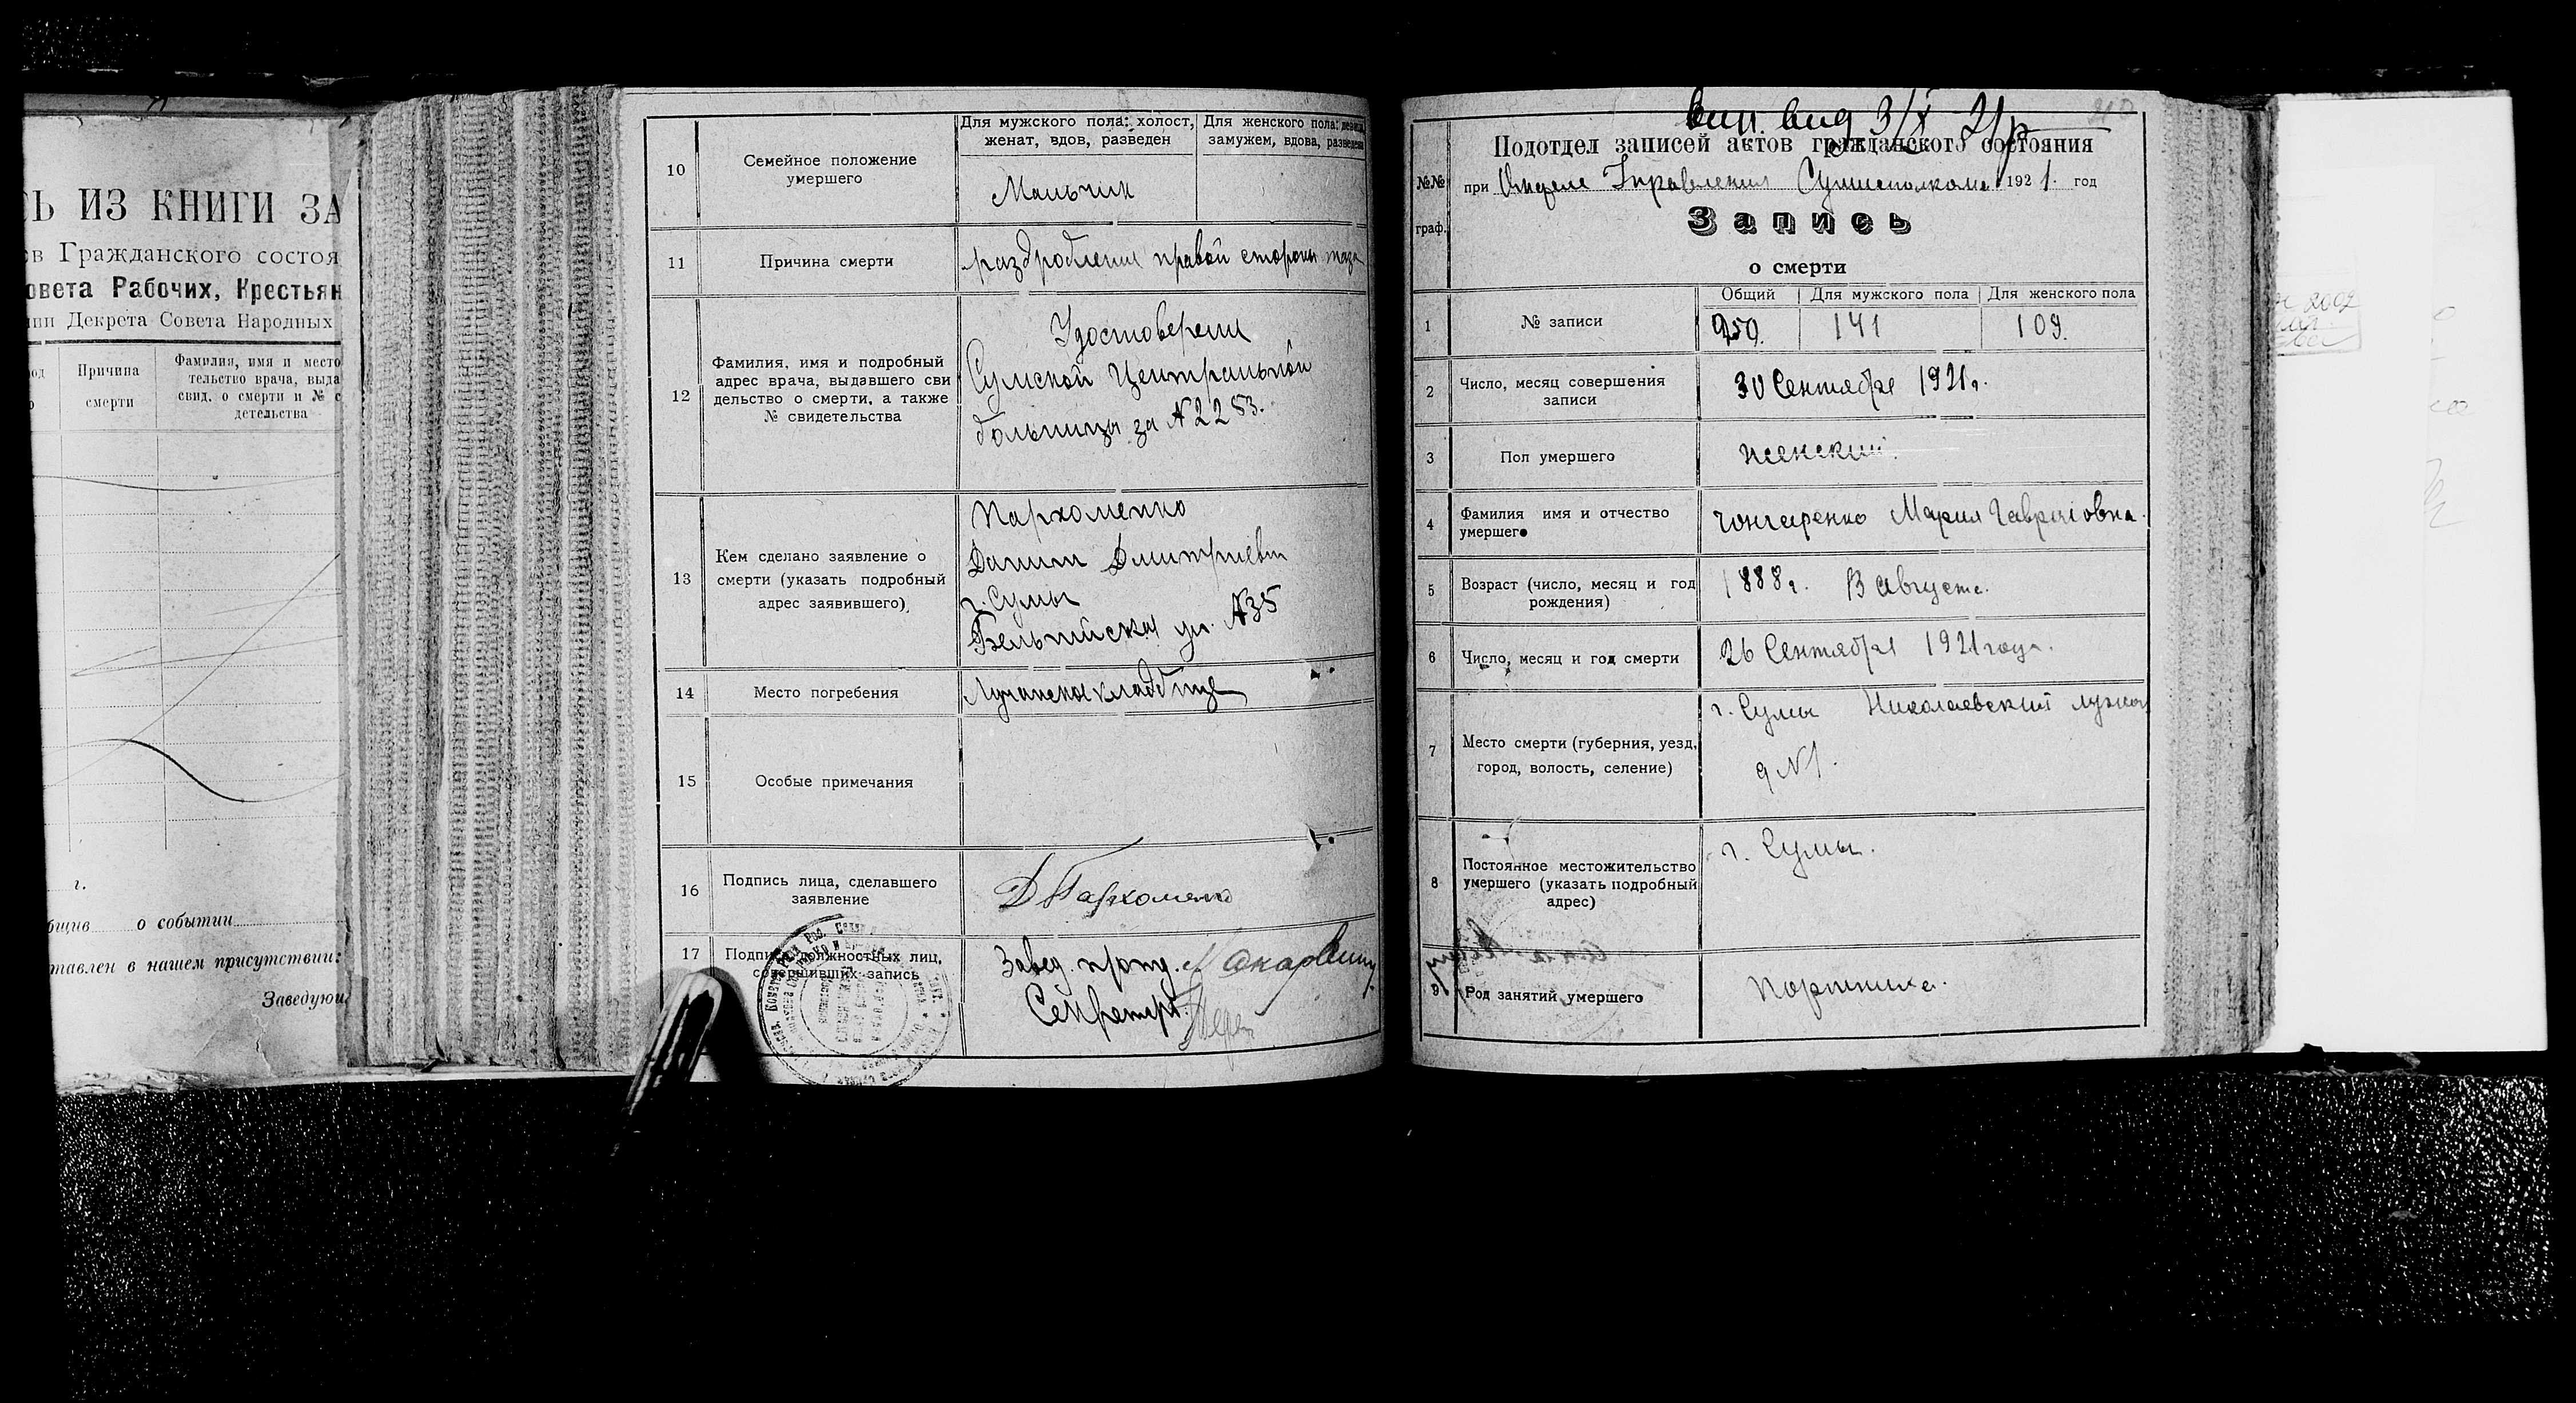 СЬ ИЗ КНИГИ ЗА
ов Гражданского состоя
овета Рабочих, Крестьян
нии Декрета Совета Народных
Причина
смерти
Фамилия, имя и место
тельство врача, выда
свид. о смерти и № с
детельства
г.
бщив о событии
тавлен в нашем присутствии:
Заведующ
10
Семейное положение
умершего
Для мужского пола: холост,
женат, вдов, разведен
Для женского пола: девица,
замужем, вдова, разведена
Мальчик
11
Причина смерти
раздробления правой стороны таза
12
Фамилия, имя и подробный
адрес врача, выдавшего сви
дельство о смерти, а также
№ свидетельства
Удостоверение
Сумской Центральной
больницы за № 2283.
13
Кем сделано заявление о
смерти (указать подробный
адрес заявившего)
Пархоменко
Данил Дмитриевич
г. Сумы
Бельгийская ул. №35
14
Место погребения
Лучанское кладбище
15
Особые примечания
16
Подпись лица, сделавшего
заявление
Д Пархоменко
17
Подписи должностных лиц,
совершивших запись
Завед.
Секретарь
вип. вид 3/X 21р
№№
граф.
Подотдел записей актов гражданского состояния
при Отделе Управления Сумисполкома 1921. год
Запись
о смерти
1
№ записи
Общий
Для мужского пола
Для женского пола
250.
141
109.
2
Число, месяц совершения
записи
30 Сентября 1921 г.
3
Пол умершего
женский.
4
Фамилия имя и отчество
умершего
Гончаренко Мария Гавриловна.
5
Возраст (число, месяц и год
рождения)
1888 г. 13 августа.
6
Число, месяц и год смерти
26 Сентября 1921 года.
7
Место смерти (губерния, уезд,
город, волость, селение)
г. Сумы Николаевский
д №1.
8
Постоянное местожительство
умершего (указать подробный
адрес)
г. Сумы.
9
Род занятий умершего
Портниха.